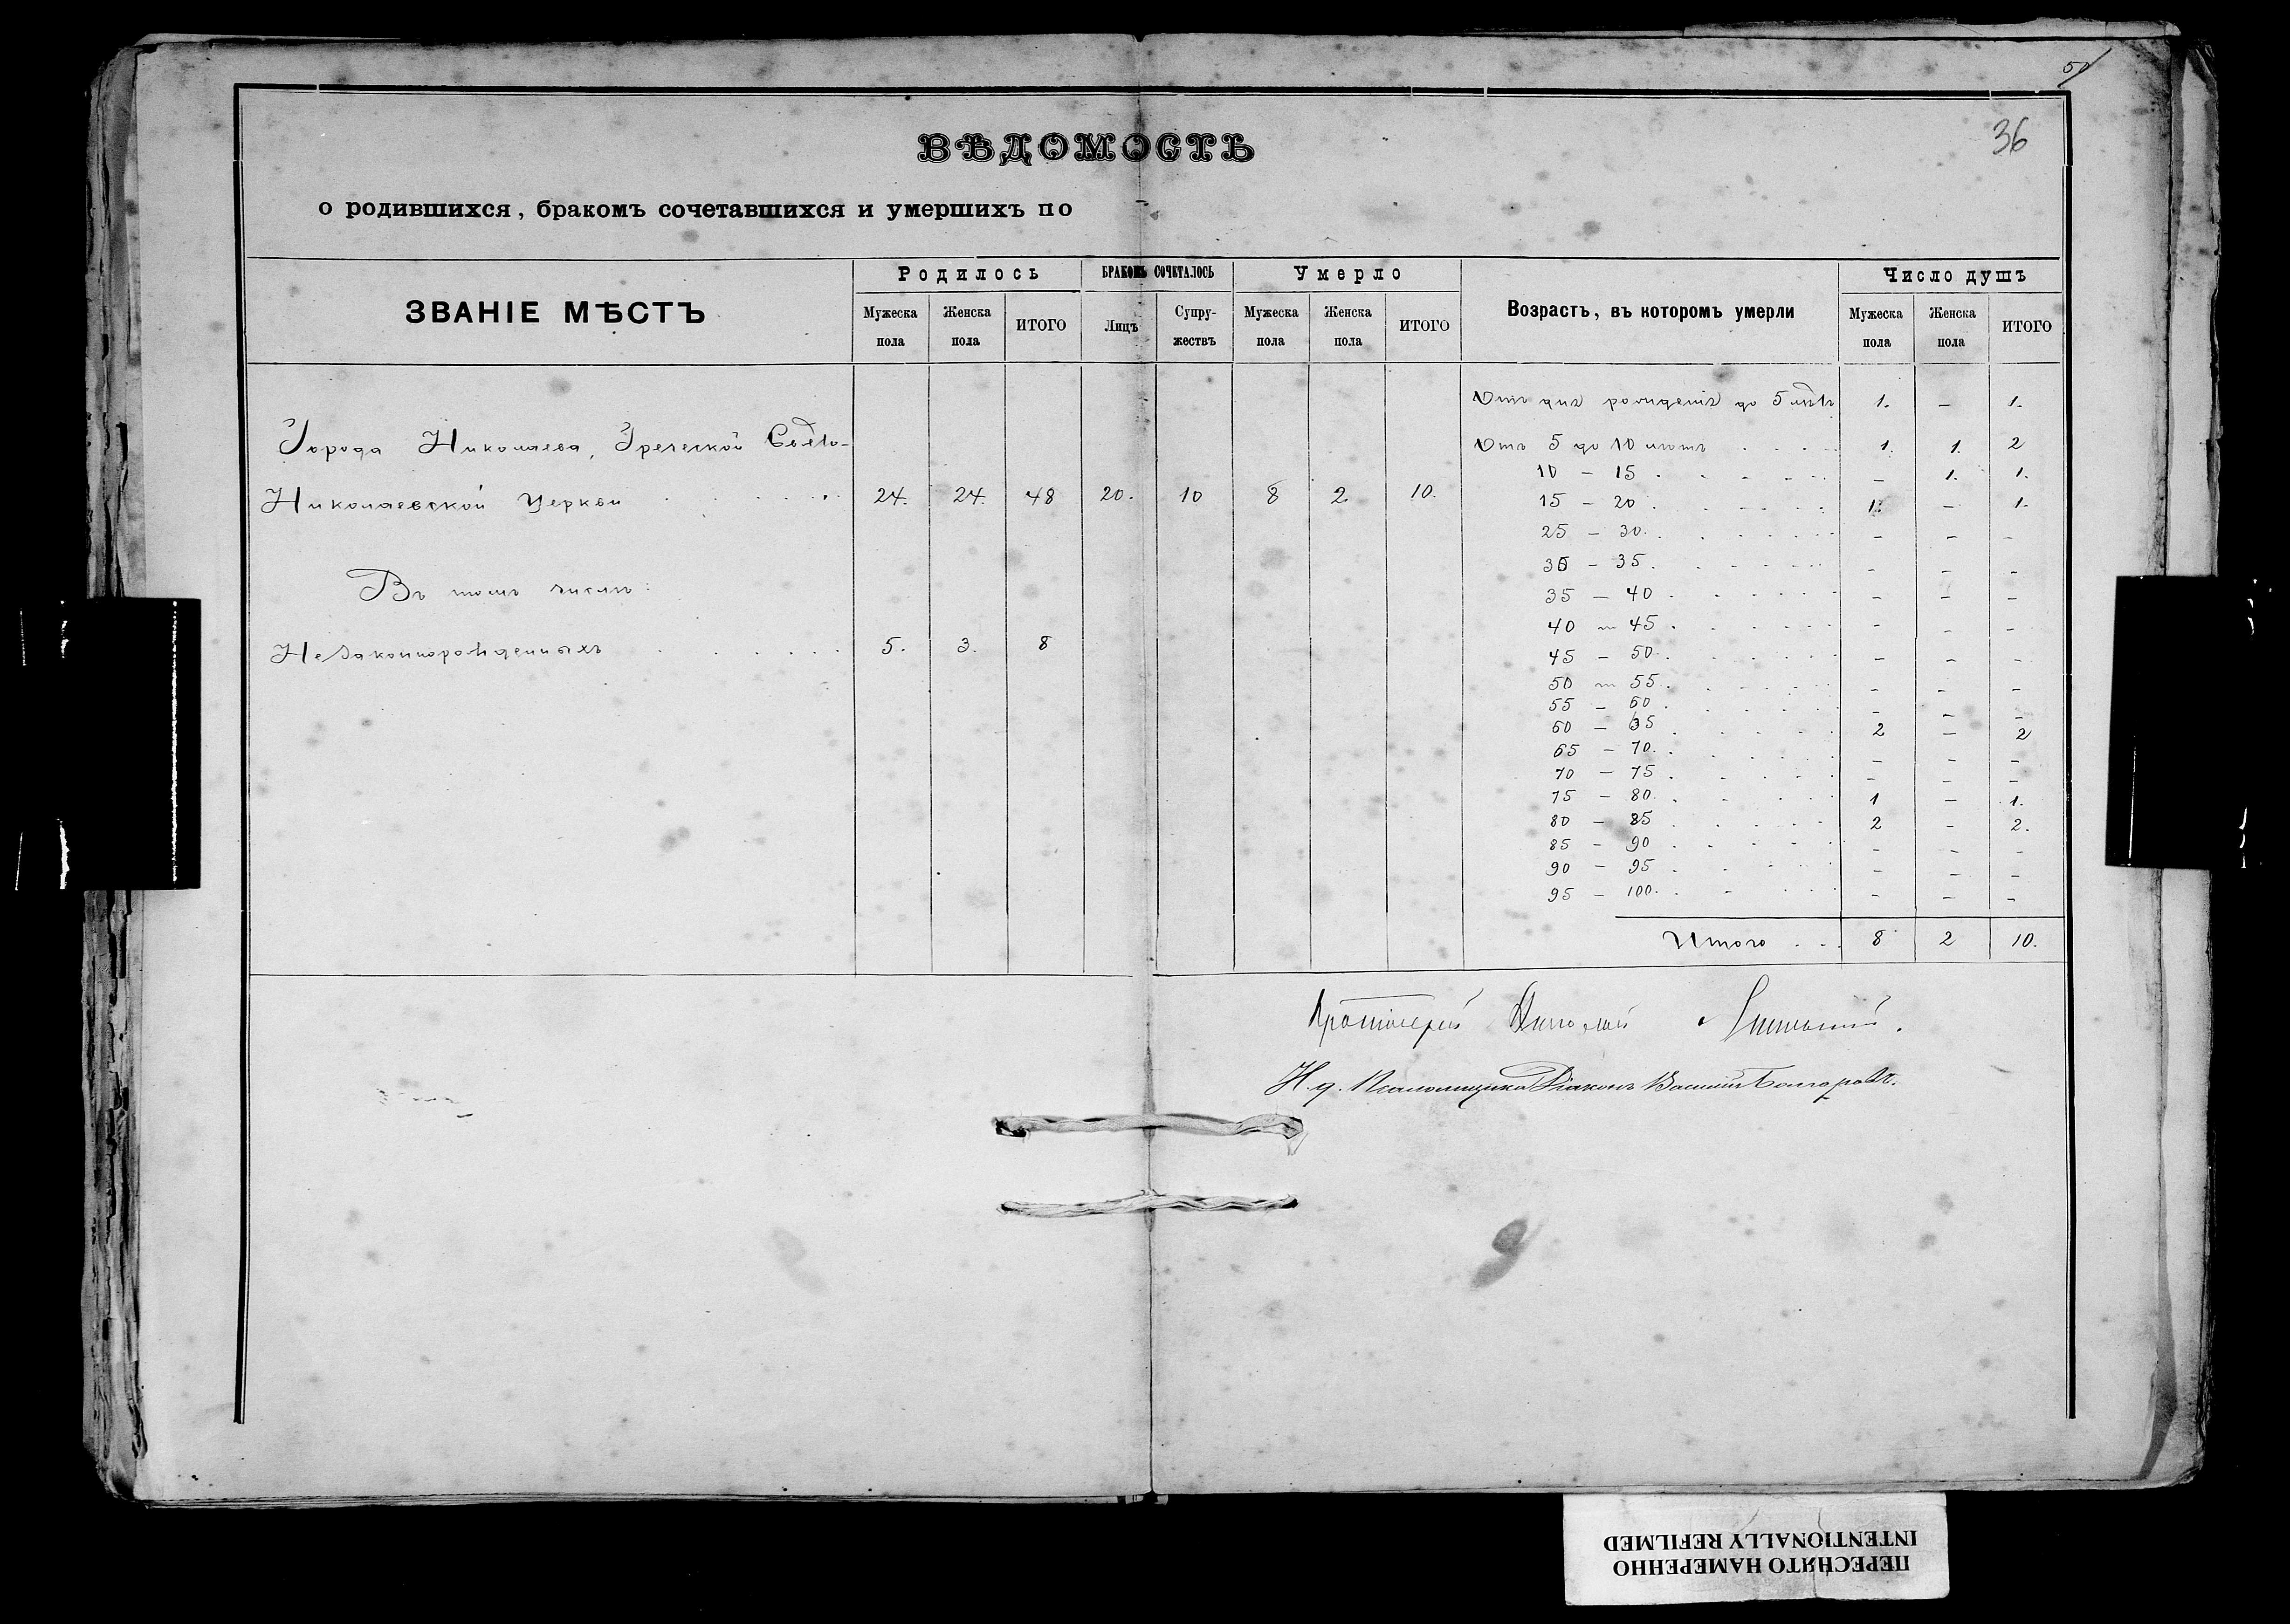 50
36
ВѢДОМОСТЬ
о родившихся, бракомъ сочетавшихся и умершихъ по
ЗВАНІЕ МѢСТЪ
Родилось
БРАКОМЪ СОЧЕТАЛОСЬ
Умерло
Возрастъ, въ которомъ умерли
Число душъ
Мужеска пола
Женска пола
ИТОГО
Лицъ
Супружествъ
Мужеска пола
Женска пола
ИТОГО
Мужеска пола
Женска пола
ИТОГО
Города Николаева, Греческой Свято-
Николаевской Церкви 24. 24. 48 20. 10 8 2. 10.
Въ томъ числѣ:
Незаконнорожденныхъ 5. 3. 8
Отъ дня рожденія до 5 лѣтъ 1. — 1.
Отъ 5 до 10 лѣтъ 1. 1. 2
10 — 15 — 1. 1.
15 — 20 1. — 1.
25 — 30 — — —
30 — 35 — — —
35 — 40 — — —
40 — 45 — — —
45 — 50 — — —
50 — 55 — — —
55 — 60 — — —
60 — 65 2 — 2
65 — 70 — — —
70 — 75 — — —
75 — 80 1 — 1.
80 — 85 2 — 2.
85 — 90 — — —
90 — 95 — — —
95 — 100 — — —
Итого 8 2 10.
Протоіерей Николай
И. д. Псаломщика Діаконъ Василій
ПЕРЕСНЯТО НАМЕРЕННО
INTENTIONALLY REFILMED